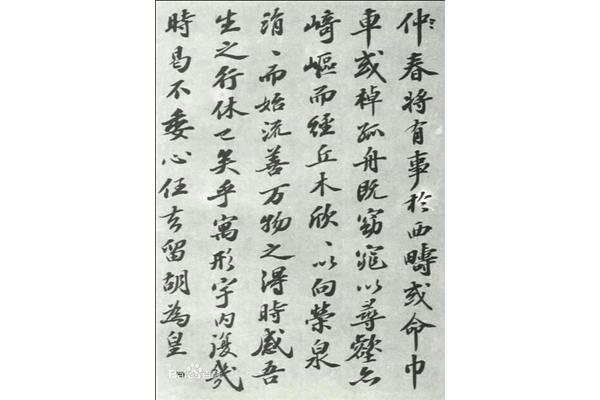 仲春将有事於西疇或命巾
車或棹孤舟既窈窕以尋壑亦
崎嶇而經丘木欣、以向榮泉
涓、而始流善万物之得時感吾
生之行休已矣乎寓形宇內復幾
時曷不委心任去留胡為皇